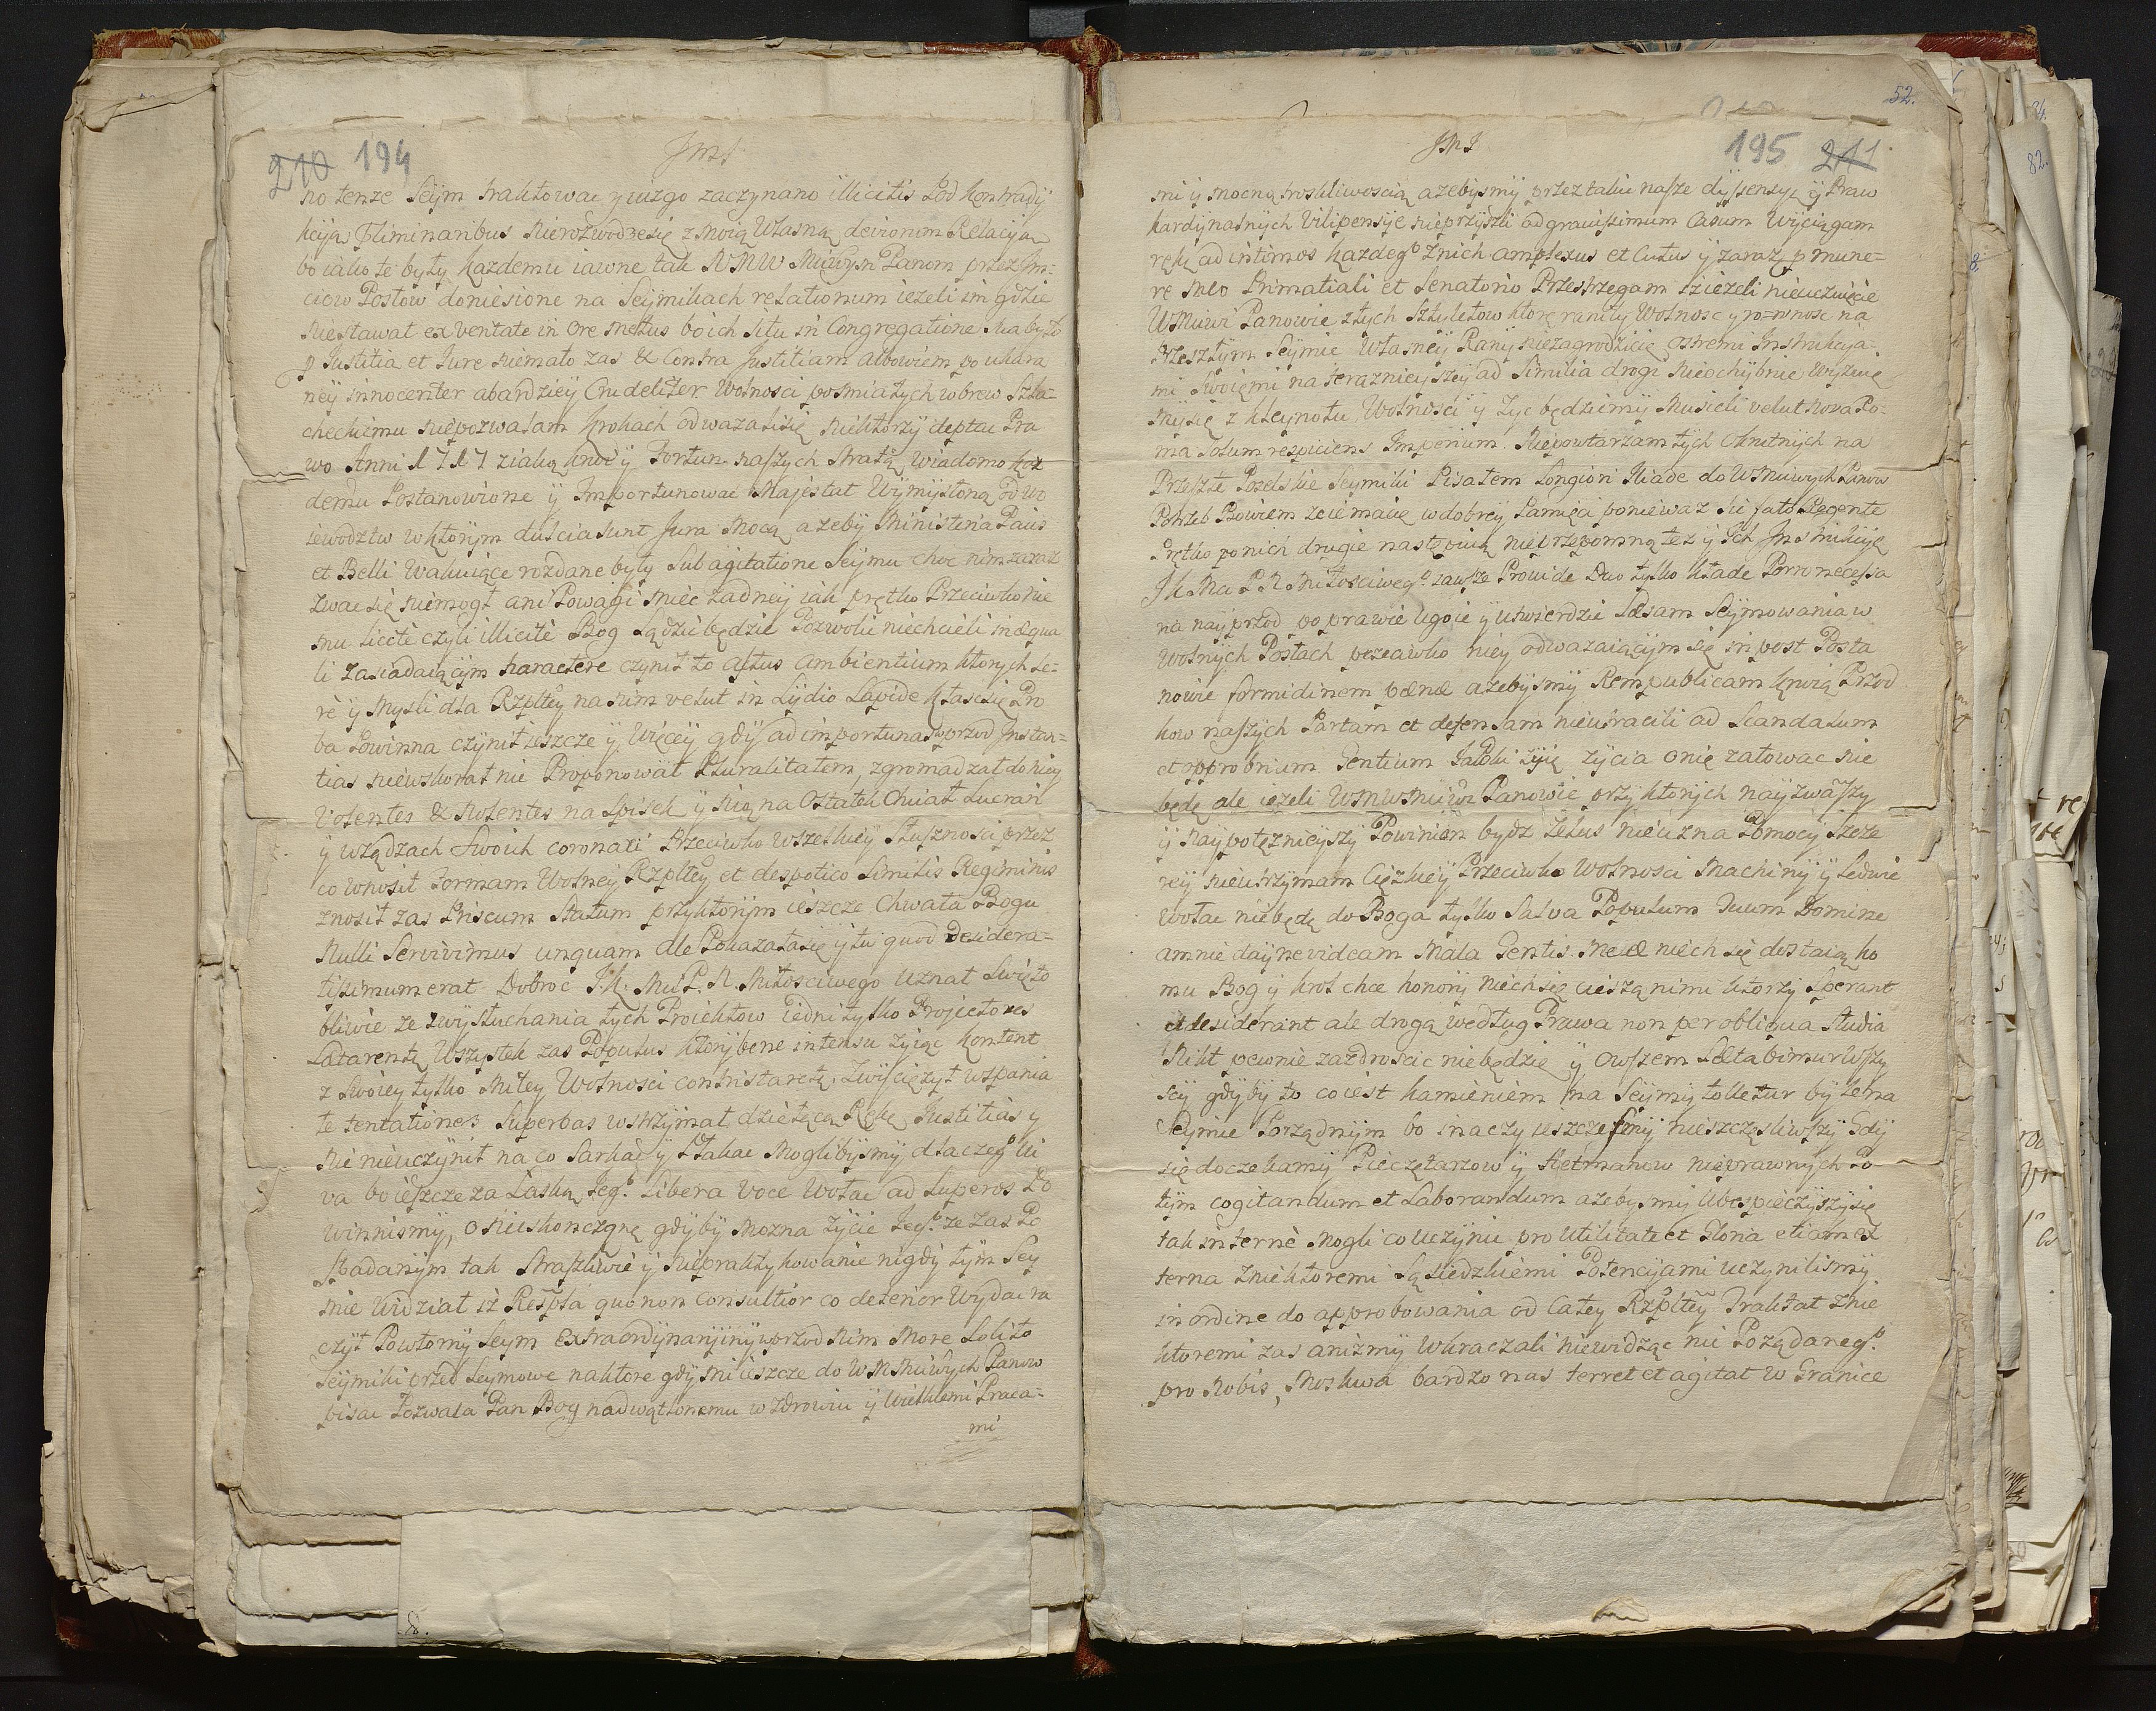 210 194
JMJ
no tenze Seÿm traktowac y iuz go zaczynano illicitis Pod kontradÿ
kcÿą Eliminaribus nierozwodzę się z moią Własną deivionim Relacÿią
bo iako te były każdemu iawne tak WMW Miwÿm Panom przez Jm:
ciow Posłow doniesione na Seÿmikach relationum ieżeli im gdzie
niestawał ex veritate in ore metus bo ich situ in Congregatione ma było
p Iustitia et Iure niemało zas & Contra Justitiam albowiem po ukara
nëÿ innocenter abardzieÿ Crudeliter Wolnosci posmiałych wbrew Szla=
checkiemu niepozwalam krokach odwazalisię niektorzÿ deptac Pra
wo Anni 1717 ziaką krwi ÿ Fortun naszych stratą wiadomo każ
demu Postanowione ÿ Importunowac Majestat Wÿmÿsłoną od wo
iewodztw wktorÿm duscia sunt Jura Mocą azebÿ Ministeria Pacis
et Belli Wakuiące rozdane były Sub agitatione Seÿmu choc nim zaraz
zwac się niemogł ani Powagi miec zadneÿ iak prętko Przeciwko nie
mu licite czyli illicite Bog Sądzic będzie Pozwolic niechcieli in æqua
li zasiadaiącÿm haractere czynił to astus ambientium ktorych Se=
rè ÿ Mysli dla Rzpltey na nim velut in Lÿdio Lapide kłaśc się Pro
ba Powinna czÿnił ieszcze ÿ Więcëÿ gdÿ ad importunas wprzod Instan=
tias niewskorał nie Proponował Pluralitatem, zgromadzał do niey
Volentes & Nolentes na Spisek ÿ nię na Ostatek Chciał Lucran
ÿ wządzach swoich coronari Przeciwko wszelkieÿ słusznosci przez
co wnosił Formam Wolneÿ Rzpltey et despotico Similis Regiminis
znosił zas Priscum statum przÿktorÿm ieszcze Chwała Bogu
Nulli Servivimus unquam ale Pokazała się ÿ tu quod Desidera=
tissimum erat Dobroc J.K. Mci P. N. Miłosciwego uznał Swięto
bliwie ze zwysłuchania tych Proiektow Iedni tylko Projectores
Lætarentę Wszystek zas Populus ktorÿ bene intensu żÿiąc kontent
z swoieÿ tylko Miłey Wolnosci contristaretę. Zwÿsciężył wspania
łe tentationes Superbas wstrzÿmał dziełącą Rękę Iustitias y
nic nieuczÿnił na co Sarkac ÿ Płakac Moglibÿsmÿ dlaczegº ki
va bo ieszcze za Laską Iegº. Libera voce Wołac ad Superos Po
winnismÿ, o nieskonczonę gdÿbÿ Mozna życie Iegº. ze zas Po
Spadanÿm tak Straszliwie ÿ niepraktÿkowanie nigdÿ tÿm Sey
mie Widział iż Respla quo non Consultior co deterior Wyda ra
czył Powtorny Seym Extraordÿnarÿinÿ wprzod nim More Solito
Seymiki przed Seymowe naktore gdÿ mi ieszcze do WMMciwych Panow
pisac Pozwala Pan Bog nadwątlonemu w zdrowiu ÿ Wielkiemi Praca=
mi
52.
JMJ
195 211
mi ÿ mocną troskliwoscią azebÿsmÿ przez takie nasze dÿssensye ÿ Praw
kardÿnalnÿch Vilipensye nieprzÿszli ad gravissimum Casum Wÿciągam
rękę ad intimos każdegº znich amplexus et Cultus ÿ zarazę p mune=
re Meo Primatiali et Senatorio Przestrzegam iż iezeli nieuczuiecie
WMMciwi Panowie złych Sztyletow ktore raniły Wolnosc y ro=wnosc na
Przeszłÿm Seÿmie Własneÿ Ranÿ niezagrodzicie ostremi Instrukcÿia=
mi Swoięmi na teraznieÿszeÿ ad Similia drogi nieochÿbnie Wyzuię
mysię z kleynotu Wolnosci ÿ zÿc będziemÿ Musieli velut nova Ro=
ma Solum respiciens Imperium. Niepowtarzam tych Okrutnÿch na
Przeszłe Poselskie Seymiki Pisałem Longiori Iliade do WMMciwych Panow
Potrzeb Bowiem ze ie macie w dobreÿ Pamięci poniewaz sic fato Regente
Prętko po nich drugie następuią nieprzepomną też ÿ Ich Instrukcÿę
J.K. Mci P.N. Miłosciwegº. zawsze Provide Duo tylko kładę Porro necessa
na nayprzod poprawic Ugoię ÿ utwierdzic Læsam Seÿmowania w
wolnych Posłach przeciwko nieÿ odwazaiącÿm się in post Posta
nowic formidinem pœnæ azebÿsmÿ Rempublicam krwią Przod
kow naszych Partam et defensam nieutracili ad Scandalum
et opprobrium Gentium Ja Poki żyię życia o nię załowac nie
będę ale iezeli WMWMciwi Panowie przÿktorÿch nayżwaszy
ÿ Naypotęznieyszÿ Powinien bydz Zelus nieuzna Pomocÿ Szcze=
reÿ nieutrzÿmam ciężkieÿ Przeciwko Wolnosci Machinÿ ÿ Ledwie
wołac niebędę do Boga tylko Salva Populum Tuum Domine
a mnie daÿ ne videam Mala Gentis meæ niech się dostaią ko
mu Bog ÿ krol chce honorÿ Niech się cieszą nimi ktorzÿ Sperant
et desiderant ale drogą według Prawa non per obliqua Studia
Nikt pewnie zazdroscic niebędzie ÿ owszem Lætabimur Wszÿ
scÿ gdÿbÿ to co iest kamieniem na Seÿmÿ tolletur by te na
Seymie Porządnÿm bo inaczÿ ieszczesmÿ nieszczęsliwszÿ Gdÿ
się doczekamÿ Pieczętarzow ÿ Hetmanow nieprawnÿch Po
tÿm cogitandum et Laborandum azebÿsmÿ Ubespieczÿszÿ się
tak internè Mogli co uczÿnic pro Utilitate et Gloria etiam ex
terna zniektoremi Sąsiedzkiemi Potencÿiami uczynilismÿ
in ordine do approbowania od całey Rzpltey Traktat znie
ktoremi zas anizmÿ wkraczali niewidząc nic Pożądanegº.
pro Nobis, Moskwa bardzo nas terret et agitat w Granice